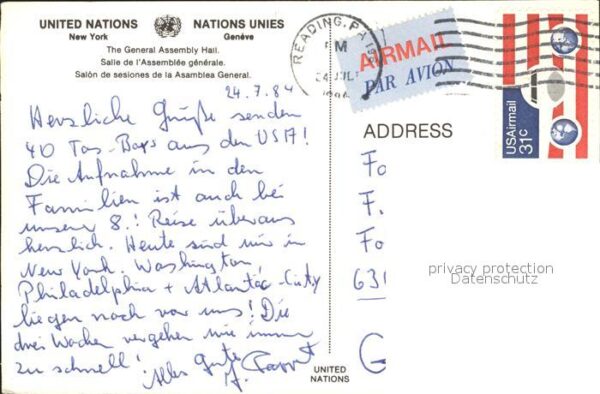 UNITED NATIONS
New York
NATIONS UNIES
Genéve
The General Assembly Hall.
Salle de l'Assemblée générale.
Salón de sesiones de la Asamblea General.
24.7.84
Herzliche Grüße senden
40 Tos-Boys aus den USA!
Die Aufnahme in den
Familien ist auch bei
unserer 8.! Reise überaus
herzlich. Heute sind wir in
New York. Washington
Philadelphia + Atlantic-City
liegen noch vor uns! Die
drei Wochen vergehen wie immer
zu schnell!
Alles Gute
READING, PA
PM
24 JUL
AIRMAIL
PAR AVION
USAirmail
31c
ADDRESS
Fo
F.
Fo
631
G
privacy protection
Datenschutz
UNITED
NATIONS